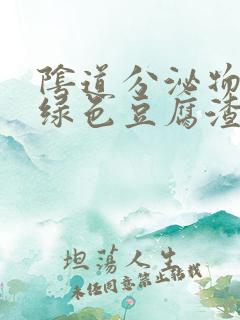 陰道分泌物
绿色豆腐渣
坦荡人生
未经同意禁止转载